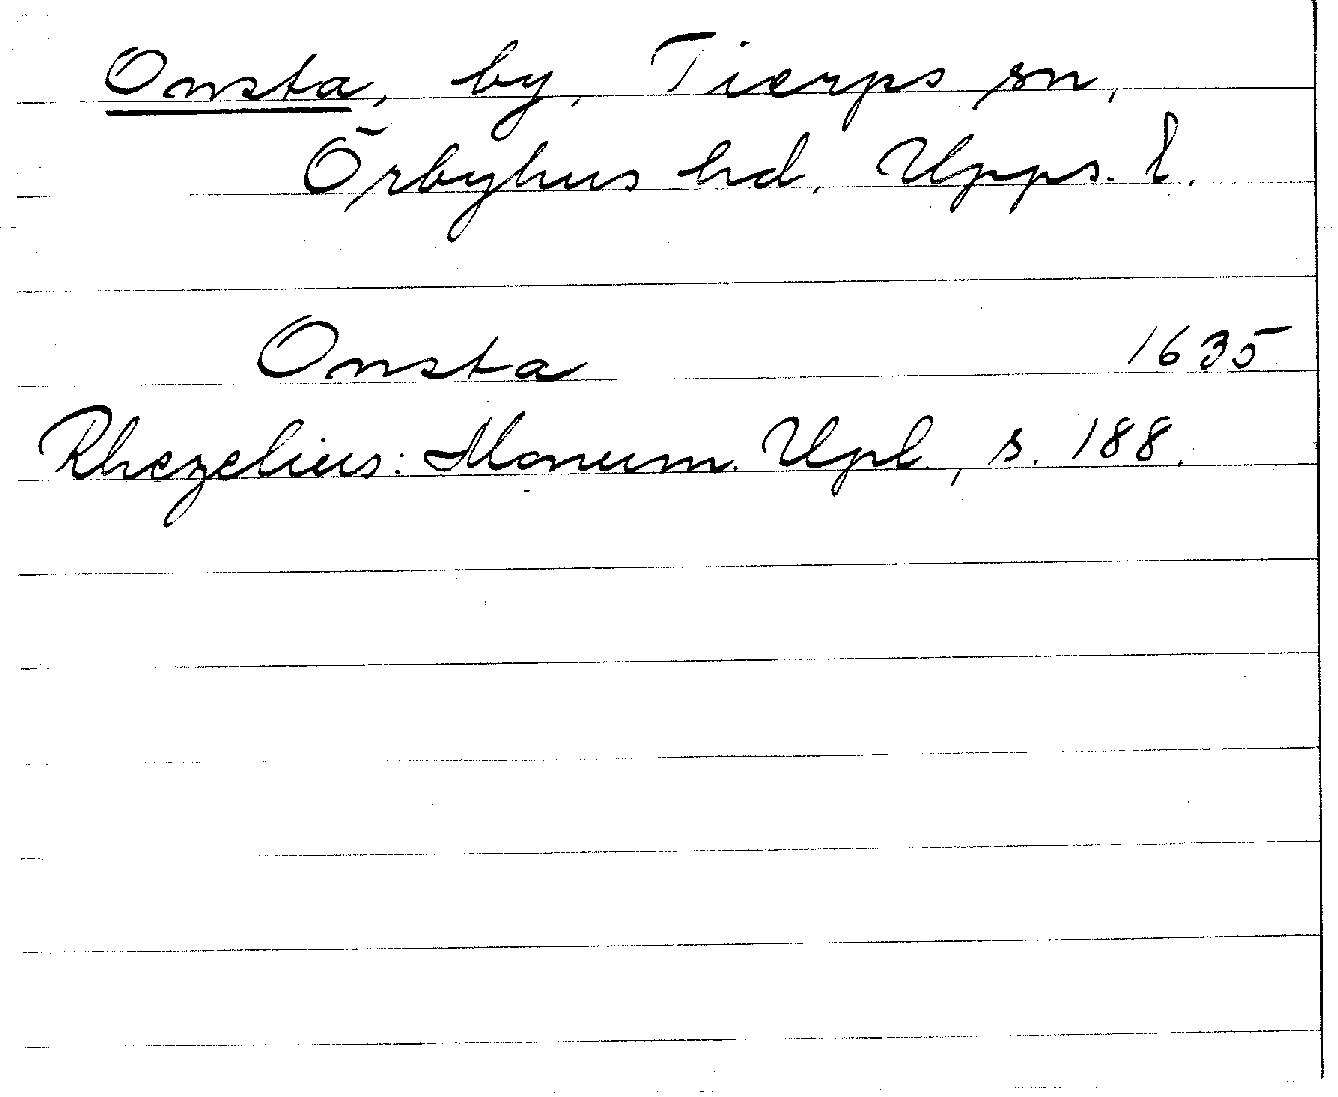 Onsta, by, Tierps sn,
Örbyhus hd, Upps. l.
Onsta 1635
Rhezelius: Monum. Upl., s. 188.